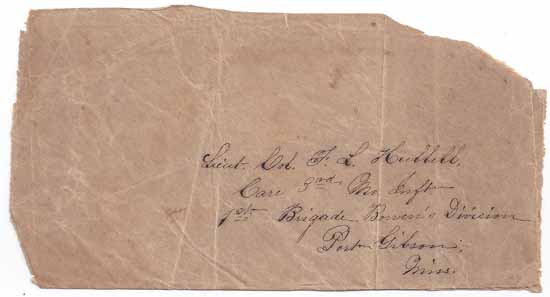 Lieut. Col. F. L. Hubbell,
Care 3rd Mo Inft
1st Brigade Bowen's Division
Port Gibson,
Miss.